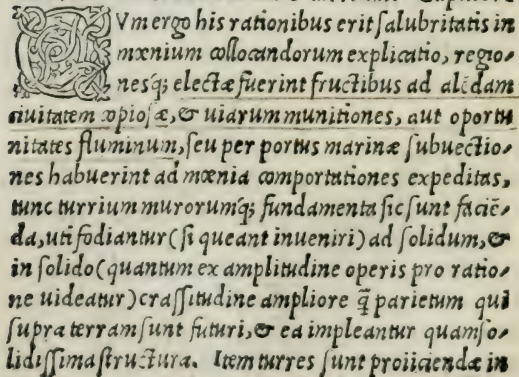 CVm ergo his rationibus erit ſalubritatis in
mœnium collocandorum explicatio, regio-
nesq́; electæ fuerint fructibus ad alẽdam
ciuitatem copioſæ, & uiarum munitiones, aut oportu
nitates fluminum, ſeu per portus marinæ ſubuectio-
nes habuerint ad mœnia comportationes expeditas,
tunc turrium murorumq́; fundamenta ſic ſunt faciẽ-
da, uti fodiantur (ſi queant inueniri) ad ſolidum, &
in ſolido (quantum ex amplitudine operis pro ratio-
ne uideatur) craſſitudine ampliore q̃ parietum qui
ſupra terram ſunt futuri, & ea impleantur quamſo-
lidiſſima ſtructura. Item turres ſunt proiiciendæ in